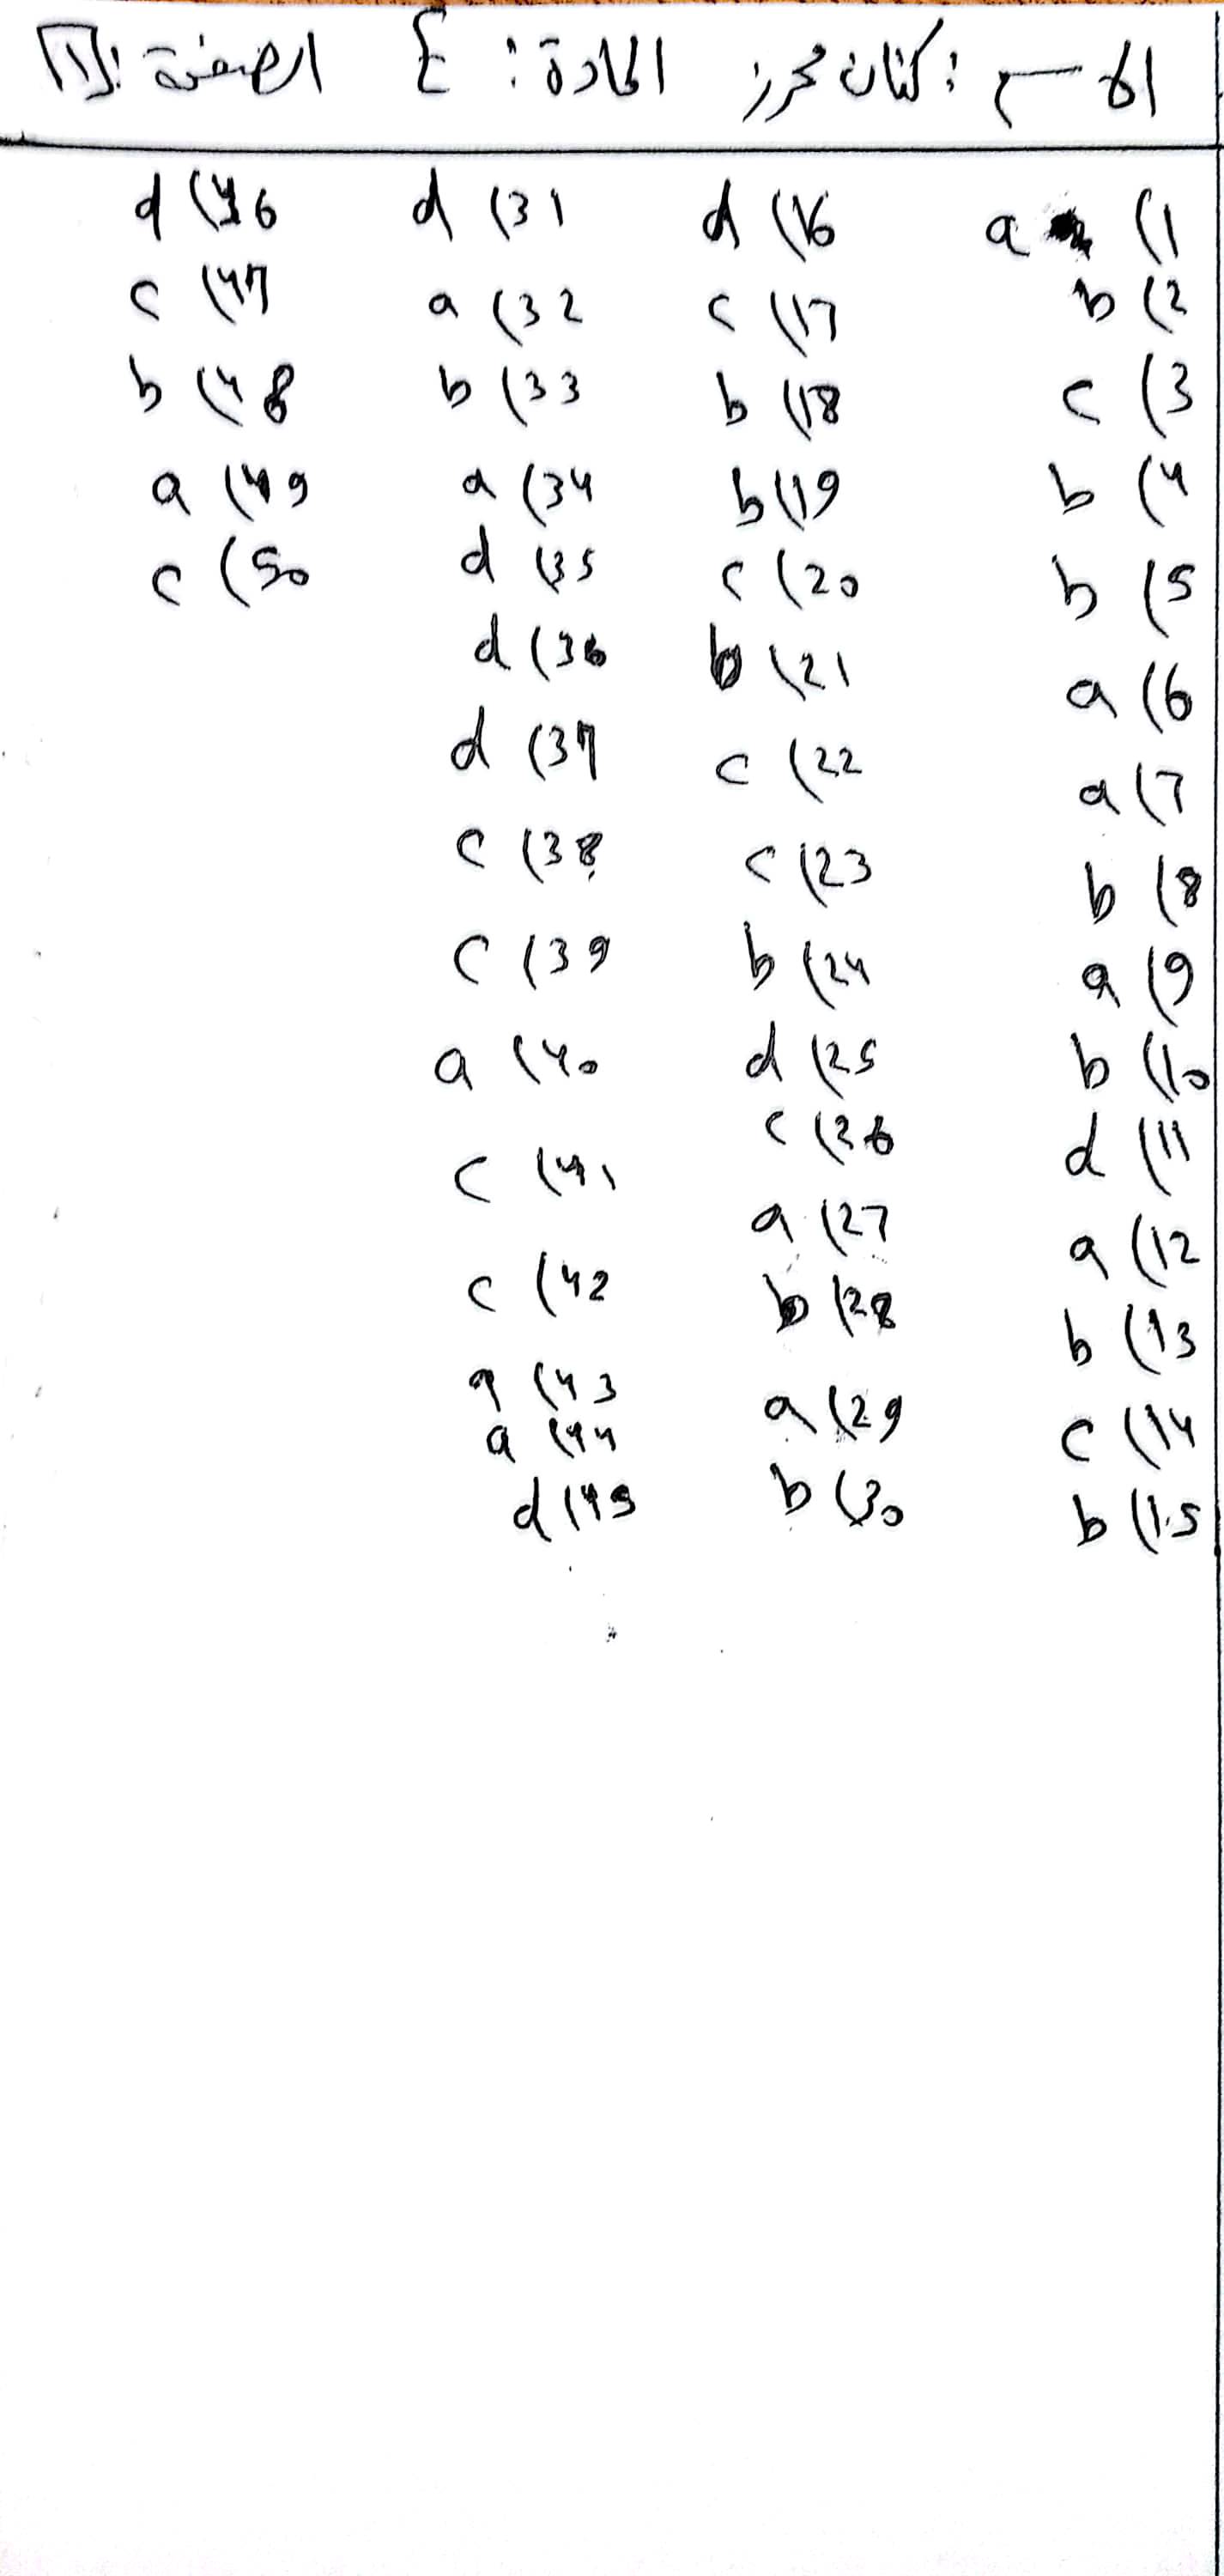 الاسم : كنان محرز المادة : E الصفحة : [1]
1) a
2) b
3) c
4) b
5) b
6) a
7) a
8) b
9) a
10) b
11) d
12) a
13) b
14) c
15) b
16) d
17) c
18) b
19) b
20) c
21) b
22) c
23) c
24) b
25) d
26) c
27) a
28) b
29) a
30) b
31) d
32) a
33) b
34) a
35) d
36) d
37) d
38) c
39) c
40) a
41) c
42) c
43) a
44) a
45) d
46) d
47) c
48) b
49) a
50) c